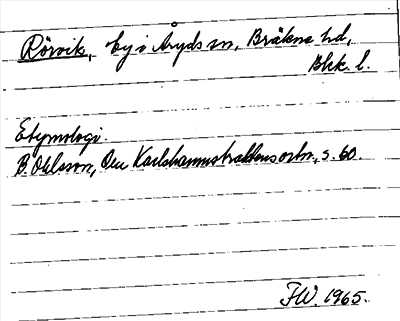 Rörvik, by i Åryds sn, Bräkne hd,
Blek. l.
Etymologi
B. Ohlsson, Den Karlshamnstraktens ortn., s. 60.
FW. 1965.